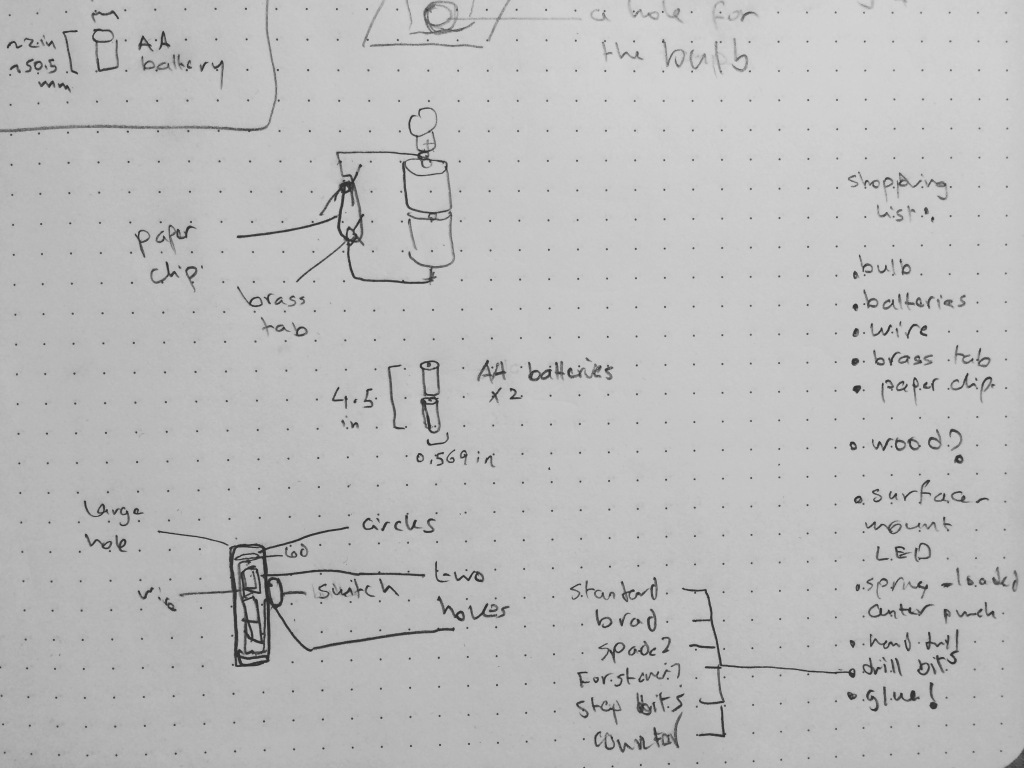 a hole for
the bulb
~2in
~50.5
mm
AA
battery
paper
clip
brass
tab
4.5
in
AA batteries
x2
0.569 in
large
hole
circles
two
holes
switch
shopping
list:
• bulb
• batteries
• wire
• brass tab
• paper clip
• wood?
• surface
mount
LED
• spring-loaded
center punch
• hand drill
• drill bits
• glue!
standard
brad
spade?
Forstner?
step bits
counter